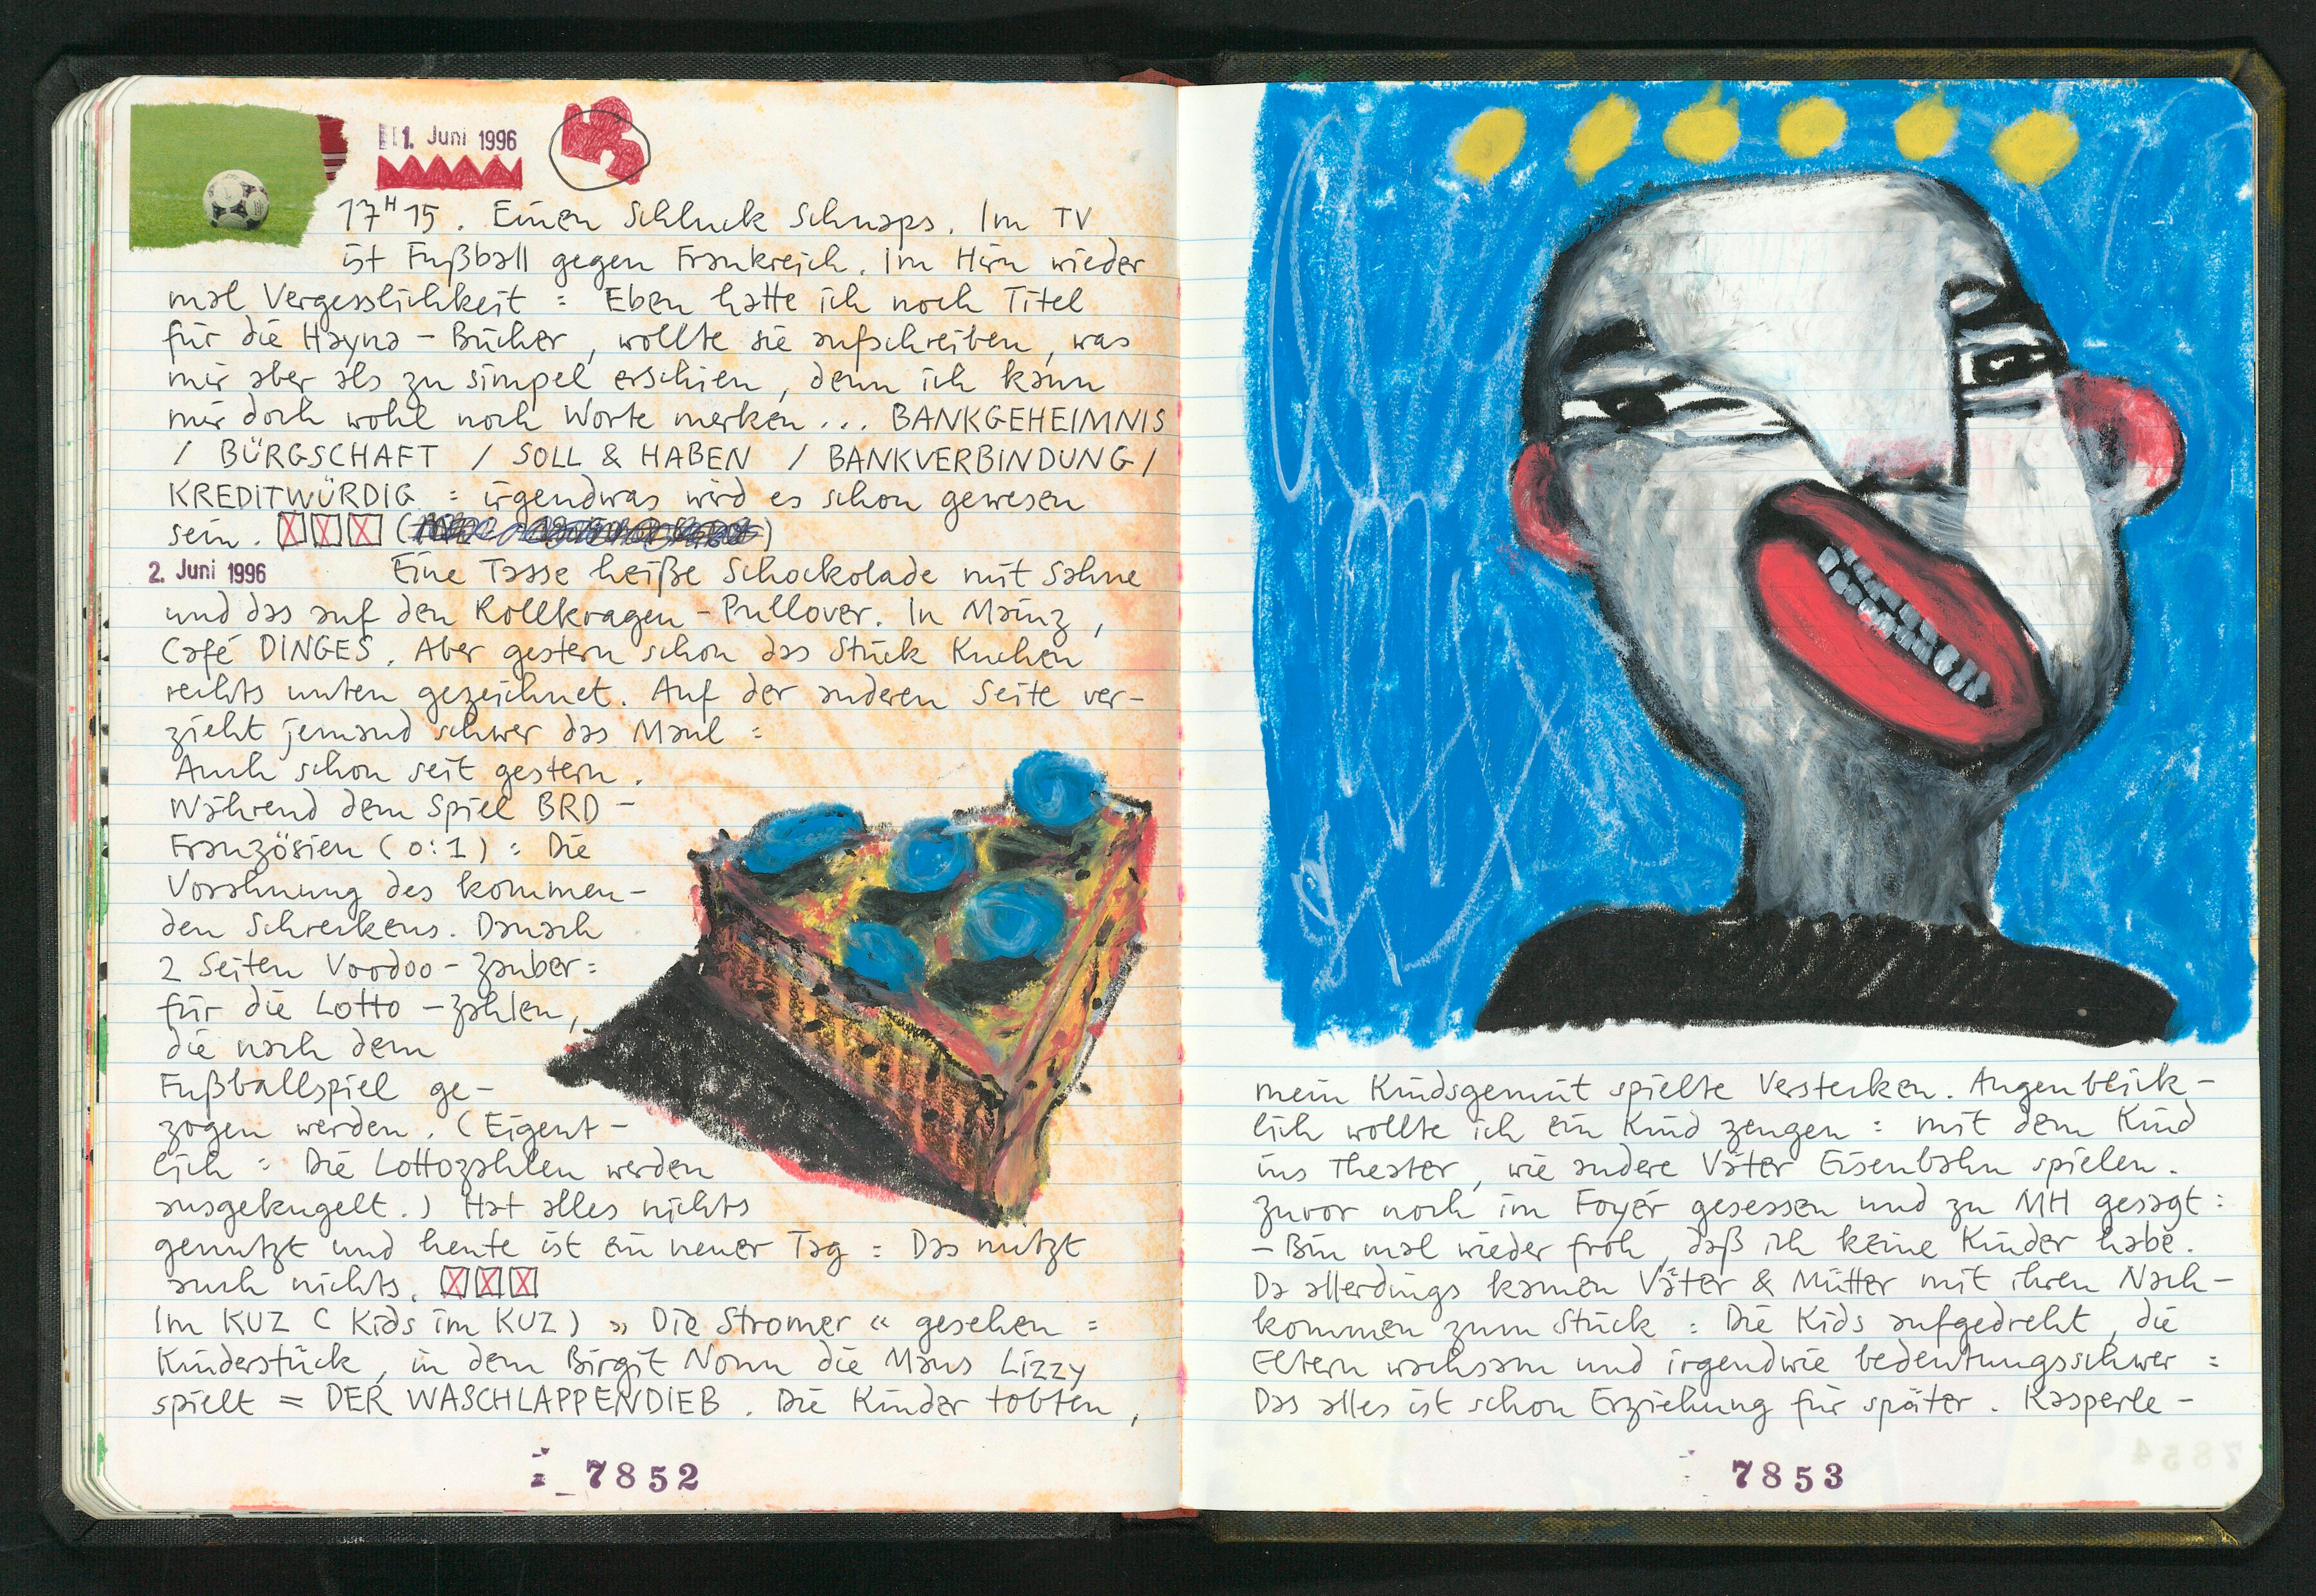 1. Juni 1996
17H15. Einen Schluck Schnaps. Im TV
ist Fußball gegen Frankreich. Im Hirn wieder
mal Vergesslichkeit : Eben hatte ich noch Titel
für die Hayna - Bücher, wollte sie aufschreiben, was
mir aber als zu simpel erschien, denn ich kann
mir doch wohl noch Worte merken ... BANKGEHEIMNIS
/ BÜRGSCHAFT / SOLL & HABEN / BANKVERBINDUNG /
KREDITWÜRDIG : irgendwas wird es schon gewesen
sein. XXX ( )
2. Juni 1996 Eine Tasse heiße Schockolade mit Sahne
und das auf den Rollkragen - Pullover. In Mainz,
Café DINGES. Aber gestern schon das Stück Kuchen
rechts unten gezeichnet. Auf der anderen Seite ver-
zieht jemand schwer das Maul :
Auch schon seit gestern.
Während dem Spiel BRD -
Französien (0:1) : Die
Vorahnung des kommen-
den Schreckens. Danach
2 Seiten Voodoo - Zauber :
für die Lotto - Zahlen,
die nach dem
Fußballspiel ge-
zogen werden. (Eigent-
lich : Die Lottozahlen werden
ausgekugelt.) Hat alles nichts
genutzt und heute ist ein neuer Tag : Das nutzt
auch nichts. XXX
Im KUZ ( Kids im KUZ ) » Die Stromer « gesehen :
Kinderstück, in dem Birgit Nonn die Maus Lizzy
spielt = DER WASCHLAPPENDIEB. Die Kinder tobten,
7852
mein Kindsgemüt spielte Verstecken. Augenblick-
lich wollte ich ein Kind zeugen : mit dem Kind
ins Theater, wie andere Väter Eisenbahn spielen.
Zuvor noch im Foyér gesessen und zu MH gesagt :
- Bin mal wieder froh, daß ich keine Kinder habe.
Da allerdings kamen Väter & Mütter mit ihren Nach-
kommen zum Stück : Die Kids aufgedreht, die
Eltern wachsam und irgendwie bedeutungsschwer :
Das alles ist schon Erziehung für später. Kasperle -
7853